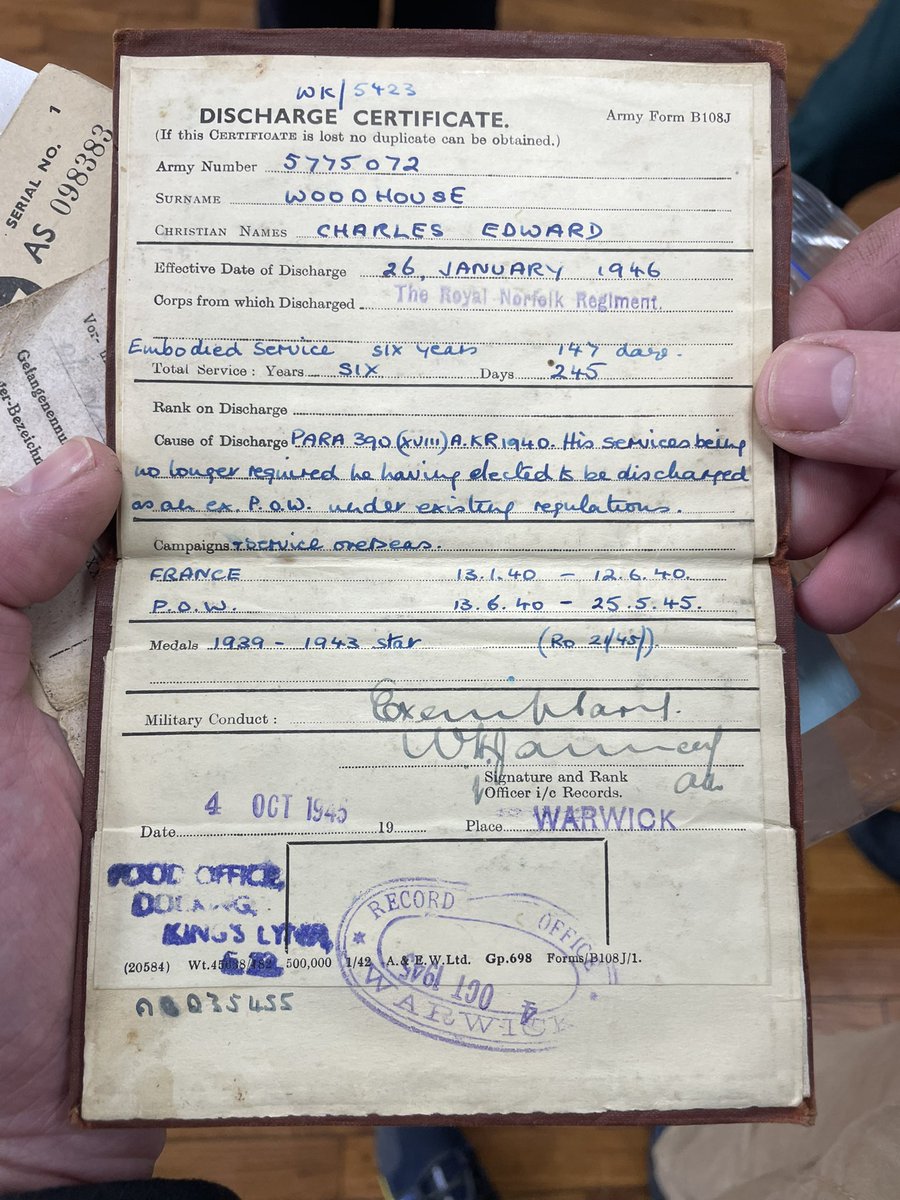 WK/5423
DISCHARGE CERTIFICATE.
Army Form B108J
(If this CERTIFICATE is lost no duplicate can be obtained.)
Army Number 5775072
SURNAME WOODHOUSE
CHRISTIAN NAMES CHARLES EDWARD
Effective Date of Discharge 26, JANUARY 1946
Corps from which Discharged The Royal Norfolk Regiment.
Embodied Service six years 147 days.
Total Service: Years SIX Days 245
Rank on Discharge
Cause of Discharge PARA 390 (XVIII) A.KR1940. His services being
no longer required he having elected to be discharged
as an ex. P.O.W. under existing regulations.
Campaigns & Service overseas.
FRANCE 13.1.40 - 12.6.40.
P.O.W. 13.6.40 - 25.5.45.
Medals 1939 - 1943 star (Ro 21/45/).
Military Conduct: Exemplary.
Signature and Rank
Officer i/c Records.
4 OCT 1945
Date 19 Place WARWICK
FOOD OFFICE,
DOCKING,
KING'S LYNN,
RECORD OFFICE
4 OCT 1945
WARWICK
(20584) Wt. 500,000 1/42 A.& E.W.Ltd. Gp.698 Forms/B108J/1.
035455
SERIAL NO. 1
AS 098383
Vor-
Gefangenennu
er-Bezeichn